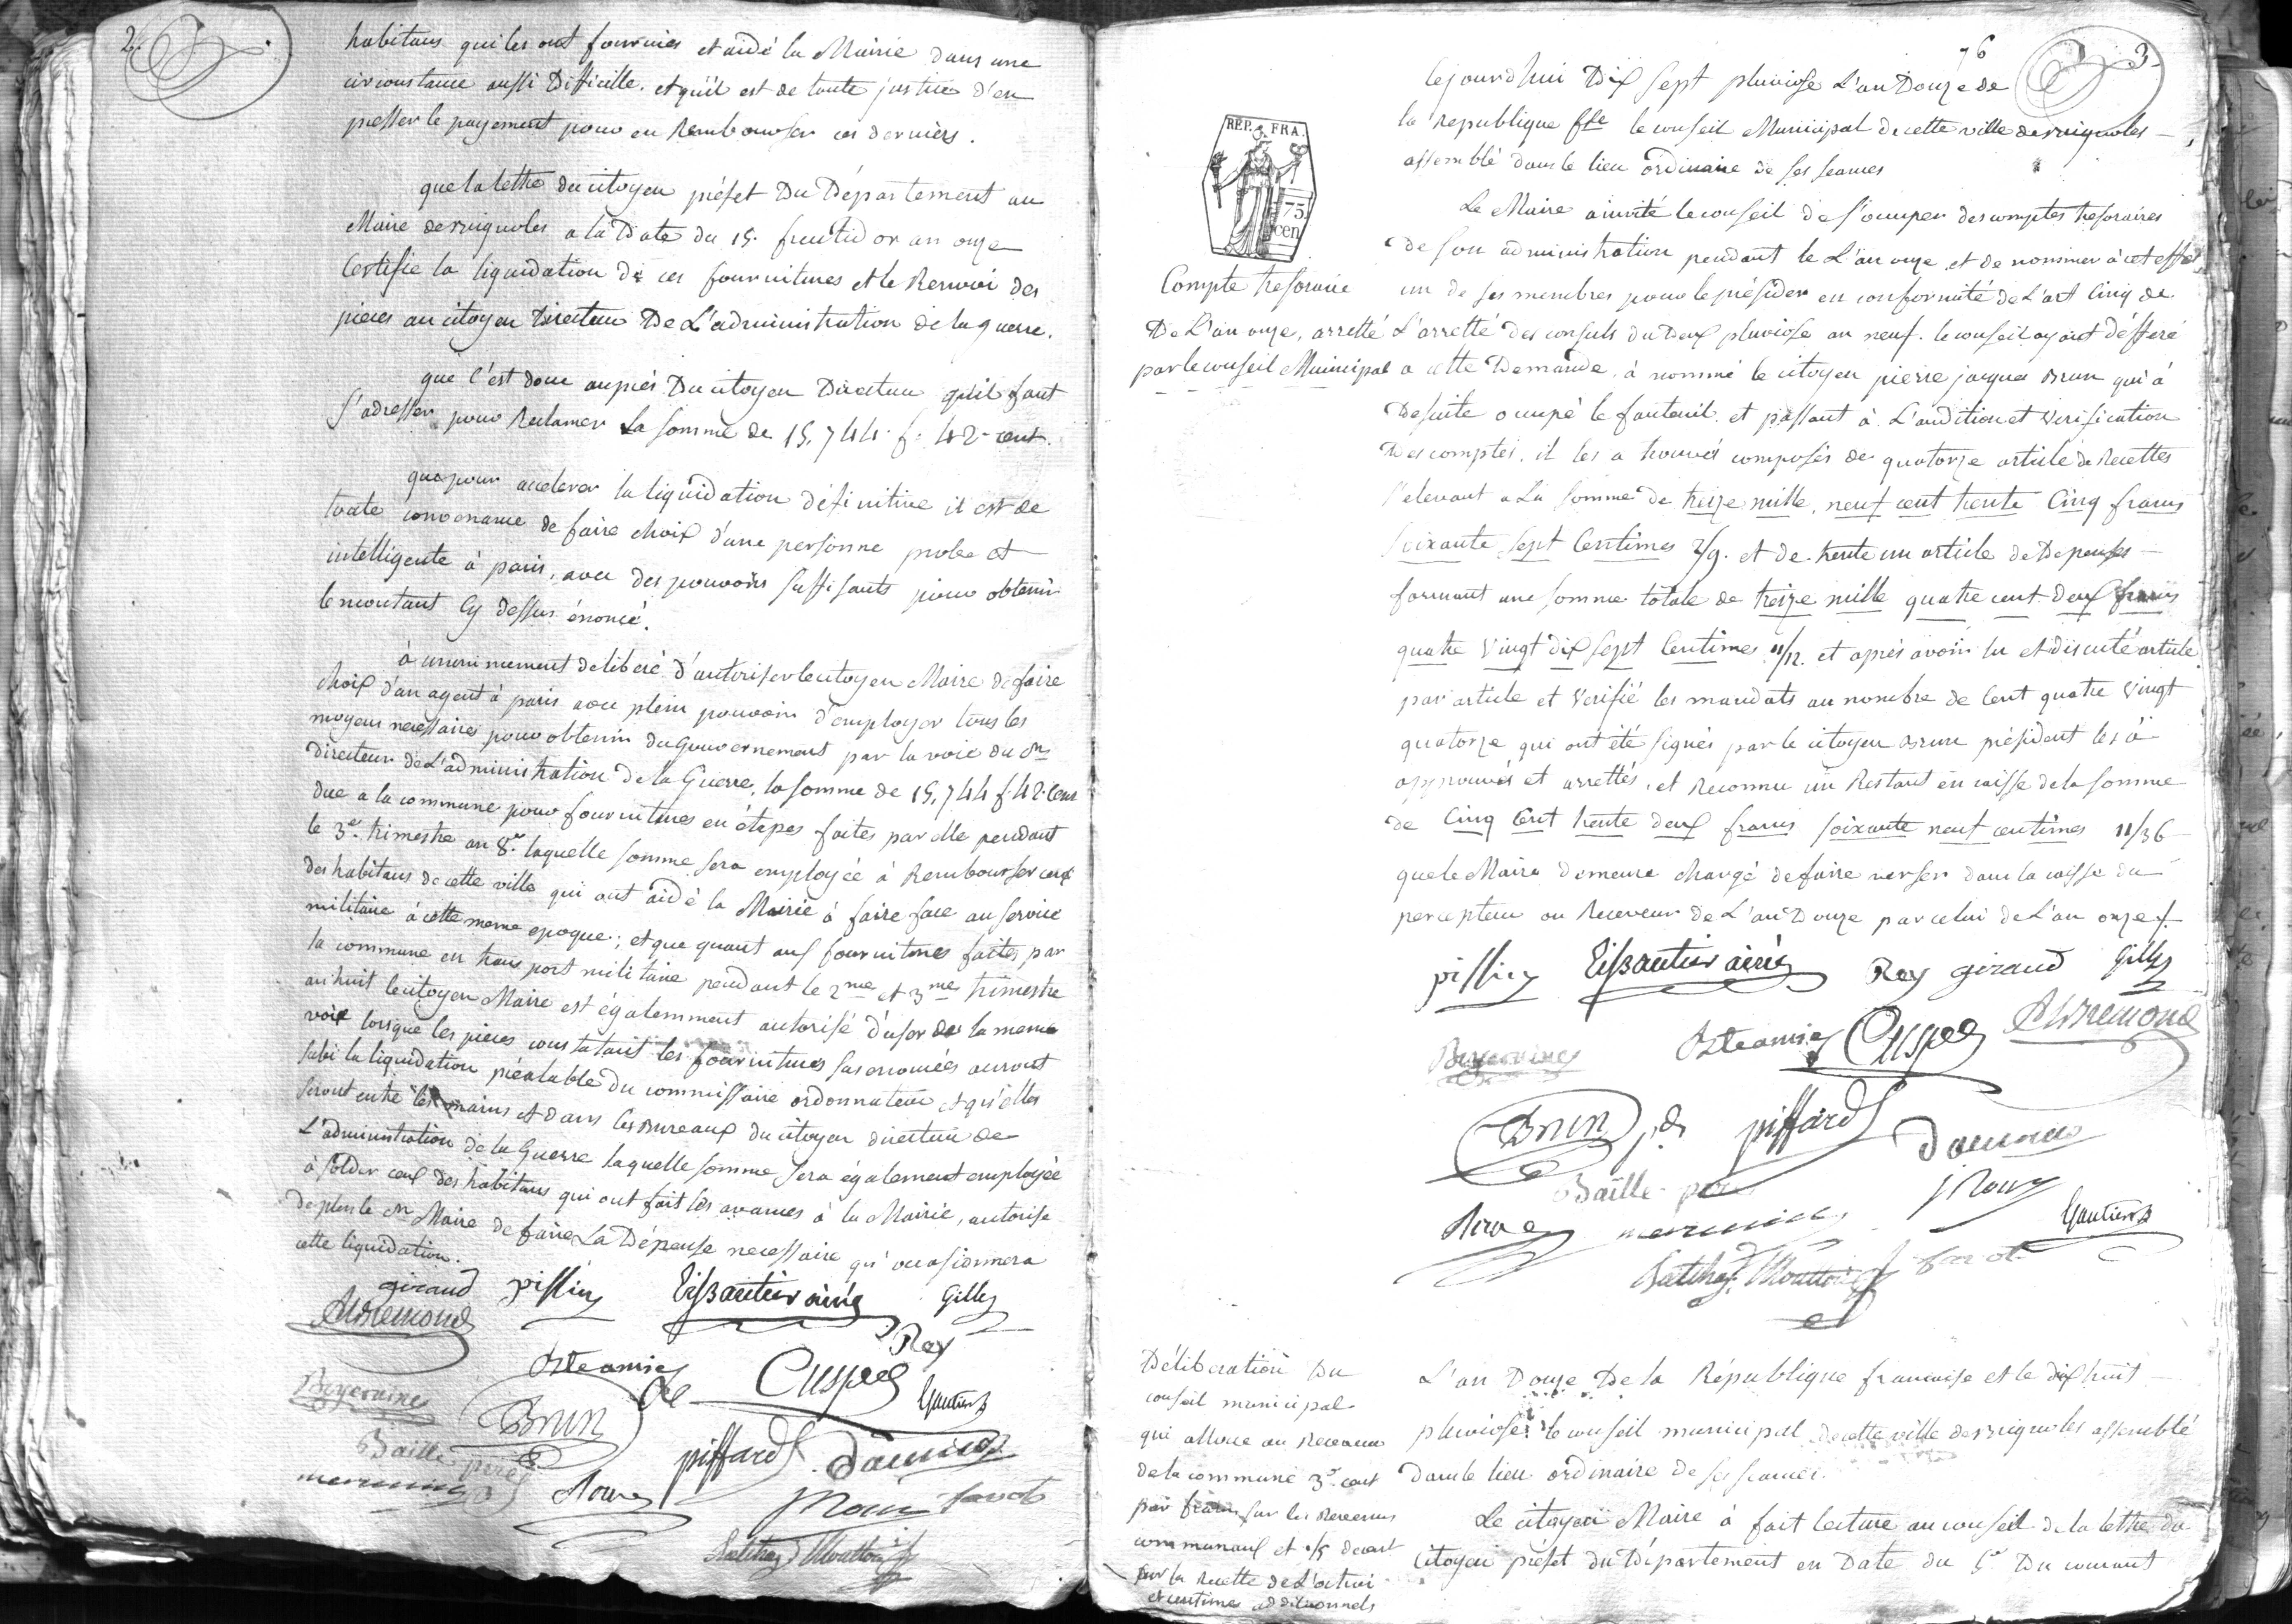 2.
habitans qui les ont fournies et aidé la Mairie dans une
circonstance aussi Difficille. et qu'il est de toute justice d'en
presser le payement pour en Rembourser ces derniers.
que la lettre du citoyen préfet Du Département au
Maire de Brignoles a la Date du 15. fructidor an onze
Certifie la liquidation de ces fournitures et le Renvoi des
pieces au citoyen Directeur De L'administration de la guerre.
que c'est donc auprès Du citoyen Directeur qu'il faut
s'adresser pour Reclamer La somme de 15,744. f. 42. cent.
que pour accelerer la liquidation définitive il est de
toute convenance de faire choix d'une personne probe et
intelligente à paris, avec des pouvoirs suffisants pour obtenir
le montant Cy dessus énoncé.
à unanimement deliberé d'autoriser le citoyen Maire de faire
choix d'un agent à paris avec plein pouvoir d'employer tous les
moyens necessaires pour obtenir du Gouvernement par la voie du cn
directeur de L'administration de la Guerre, la somme de 15,744 f. 42. Cent
due a la commune pour fournitures en étapes faites par elle pendant
le 3e. trimestre an 8e. laquelle somme sera employée à Rembourser ceux
des habitans de cette ville qui ont aidé la Mairie à faire face au service
militaire à cette meme epoque; et que quant aux fournitures faites par
la commune en transport militaire pendant le 2me et 3me trimestre
an huit le citoyen Maire est égalemment autorisé d'user de la meme
voie lorsque les pieces constatant les fournitures susenoncées auront
subi la liquidation préalable du commissaire ordonnateur et qu'elles
seront entre les mains et dans les Bureaux du citoyen directeur de
L'administration de la Guerre laquelle somme sera également employée
à solder ceux des habitans qui ont fait les avances à la Mairie, autorise
de plus le cn Maire de faire La Dépense necessaire qu'occasionnera
cette liquidation.
giraud pissin Tissautier ainé Gilly
AL Bremond Rey
Cuspec
Gautier
Brun
Baille pere piffard
3
76
Cejourd'hui Dix sept pluviose L'an Douze de
la republique fse le conseil Municipal de cette ville de Brignoles
assemblé dans le lieu ordinaire de ses seances
REP. FRA.
75
cen
Le Maire a invité le conseil de s'occuper des comptes tresoraires
de son administration pendant le L'an onze, et de nommer à cet effet
Compte tresoraire
De L'an onze, arretté
par le conseil Municipal
un de ses membres pour le présider en conformité de L'art Cinq de
L'arretté Des consuls du Deux pluviose an neuf. le conseil ayant défferé
a cette Demande, à nommé le citoyen pierre jacques Brun qui à
De suite occupé le fauteuil. et passant à L'audition et verification
Des comptes, il les a trouvés composés de quatorze article de Recettes
s'elevant a La somme de treize mille, neuf cent trente Cinq francs
soixante sept Centimes 2/9. et de trente un article de Depenses
formant une somme totale de treize mille quatre cent deux francs
quatre vingt dix sept Centimes 11/12. et après avoir lu et discuté article
par article et verifié les mandats au nombre de Cent quatre vingt
quatorze qui ont été signés par le citoyen Brun président les à
approuvés et arrettés, et Reconnu un Restant en caisse de la somme
de Cinq Cent trente deux francs soixante neuf centimes 11/36
que le Maire demeure chargé de faire verser dans la caisse du
percepteur ou Receveur de L'an Douze par celui de L'an onze.
pissin Tissautier ainé Rey giraud Gilly
Cuspec AL Bremond
Brun pdt piffard
Baille pere
Gautier
Délibération Du
conseil municipal
qui alloue au Receveur
de la commune 3e. cent
par francs sur les Revenus
communaux et
sur la Recette de L'octroi
et centimes additionnels
L'an Douze De la République francaise et le dix huit
pluviose. le conseil municipal de cette ville de Brignoles assemblé
dans le lieu ordinaire de ses seances.
Le citoyen Maire à fait lecture au conseil de la lettre du
Citoyen préfet Du Département en Date du 5e Du courant